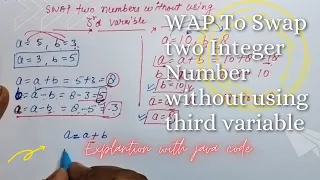 Swap two numbers without using
3rd variable
a = 5, b = 3
a = 3, b = 5
a = a+b = 5+3 = 8
b = a-b = 8-3 = 5
a = a-b = 8-5 = 3
a = 10, b = 8
b = 10
a = 8
a = a+b
WAP To Swap
two Integer
Number
without using
third variable
Explantion with java code